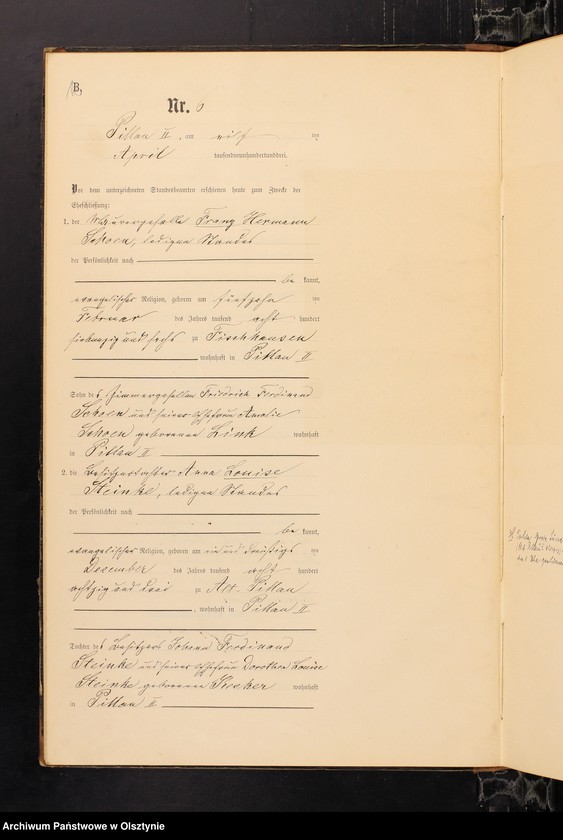 B,
Nr. 6
Pillau II, am elf ten
April tausendneunhundertunddrei.
Vor dem unterzeichneten Standesbeamten erschienen heute zum Zwecke der
Eheschließung:
1. der Maurergeselle Franz Hermann
Schoen, ledigen Standes
der Persönlichkeit nach
be kannt,
evangelischer Religion, geboren am fünfzehn ten
Februar des Jahres tausend acht hundert
siebenzig und sechs zu Fischhausen
wohnhaft in Pillau II
Sohn des Zimmergesellen Friedrich Ferdinand
Schoen und seiner Ehefrau Amalie
Schoen geborenen Link wohnhaft
in Pillau II
2. die Besitzertochter Anna Louise
Steinke, ledigen Standes
der Persönlichkeit nach
be kannt,
evangelischer Religion, geboren am ein und dreißigs ten
Dezember des Jahres tausend acht hundert
achtzig und drei zu Alt-Pillau
, wohnhaft in Pillau II
Tochter des Besitzers Johann Ferdinand
Steinke und seiner Ehefrau Dorothea Louise
Steinke geborenen wohnhaft
in Pillau II
Archiwum Państwowe w Olsztynie